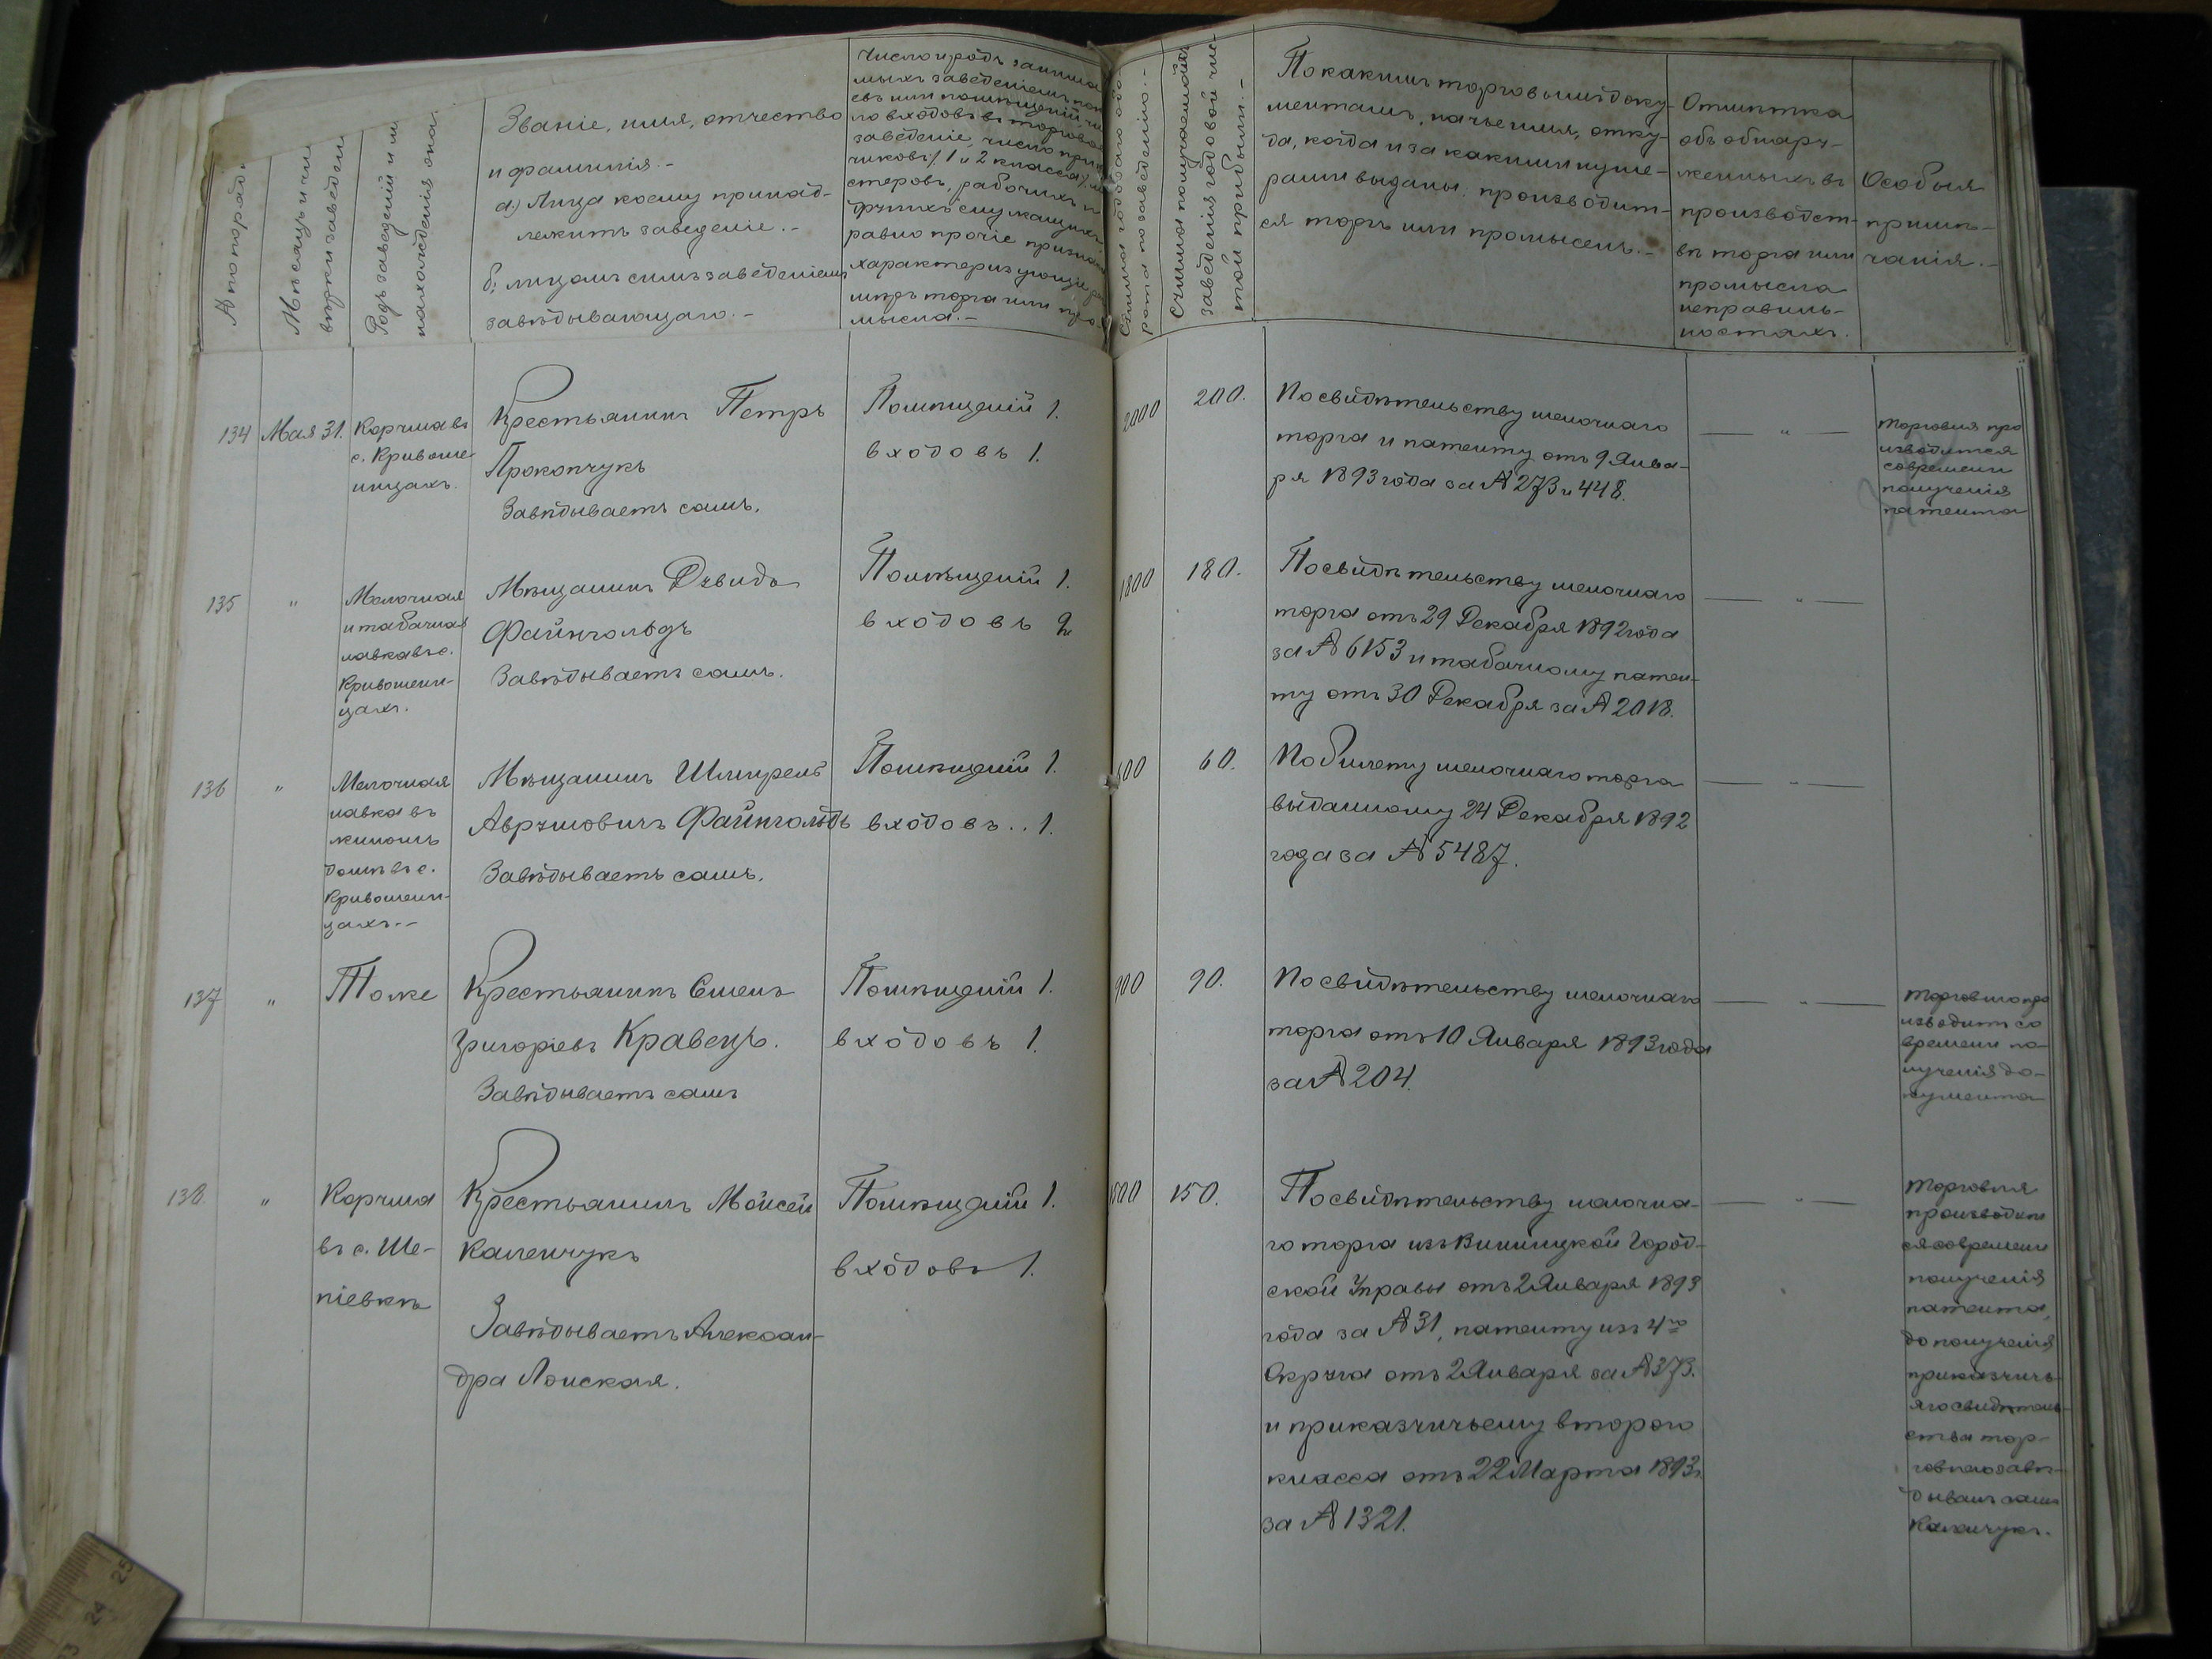 № по поряд
Мѣсяцъ и чи
вѣрки заведен
Родъ заведеній и м
нахожденія онаг
Званіе, имя, отчество
и фамилія.-
а) Лица коему принад-
лежитъ заведеніе.-
б; лицомъ симъ заведеніемъ
завѣдывающаго.-
Число и родъ занима
мыхъ заведеніемъ
евъ или помѣщеній
ло входовъ въ торгово
заведеніе, число при
чиковъ 1 и 2 класса),
стеровъ, рабочихъ и
другихъ служащихъ
равно прочіе признаки
характеризующіе раз
мѣръ торга или про-
мысла.-
Сумма годоваго обо-
рота по заведенію.-
Сумма получаемой
заведенія годовой чис-
той прибыли.-
По какимъ торговымъ доку-
ментамъ, на чье имя, отку-
да, когда и за какими нуме-
рами выданы, производит-
ся торгъ или промыселъ.-
Отмѣтка
объ обнару-
женныхъ въ
производст-
вѣ торга или
промысла
неправиль-
ностяхъ.
Особыя
примѣ-
чанія.-
134 Мая 31. Корчма въ
с. Кривоше-
инцахъ.
Крестьянинъ Петръ
Прокопчукъ
Завѣдываетъ самъ.
Помѣщеній 1.
входовъ 1.
2000 200.
По свидѣтельству мелочнаго
торга и патенту отъ 9 Янва-
ря 1893 года за № 273 и 448.
— " —
Торговля про
изводится
современи
полученія
патента
135 " Мелочная
и табачная
лавка въ с.
Кривошеин-
цахъ.
Мѣщанинъ Дувидъ
Файнгольдъ
Завѣдываетъ самъ.
Помѣщеній 1.
входовъ 2
1800 180.
По свидѣтельству мелочнаго
торга отъ 29 Декабря 1892 года
за № 6153 и табачному патен-
ту отъ 30 Декабря за № 2018.
— " —
136 " Мелочная
лавка въ
жиломъ
домѣ въ с.
Кривошеин-
цахъ.--
Мѣщанинъ Шмирель
Аврумовичъ Файнгольдъ
Завѣдываетъ самъ.
Помѣщеній 1.
входовъ.. 1.
600 60.
По билету мелочнаго торга
выданному 24 Декабря 1892
года за № 5487.
— " —
137 " Тоже
Крестьянинъ Семенъ
Григоріевъ Кравецъ.
Завѣдываетъ самъ
Помѣщеній 1.
входовъ 1.
900 90.
По свидѣтельству мелочнаго
торга отъ 10 Января 1893 года
за № 204.
— " —
Торговлю про
изводитъ со
времени по-
лученія до-
кумента
138 " Корчма
въ с. Ше-
піевкѣ
Крестьянинъ Мойсей
Каленчукъ
Завѣдываетъ Алексан-
дра Лоиская.
Помѣщеній 1.
входовъ 1.
1500 150.
По свидѣтельству мелочна-
го торга изъ Винницкой Город-
ской Управы отъ 2 Января 1893
года за № 31, патенту изъ 4го
Округа отъ 2 Января за № 373.
и приказчичьему второго
класса отъ 22 Марта 1893 г
за № 1321.
— " —
Торговля
производит
ся современи
полученія
патента,
до полученія
приказчичь-
яго свидѣтель-
ства тор-
говлею завѣ-
дывалъ самъ
Каленчукъ.